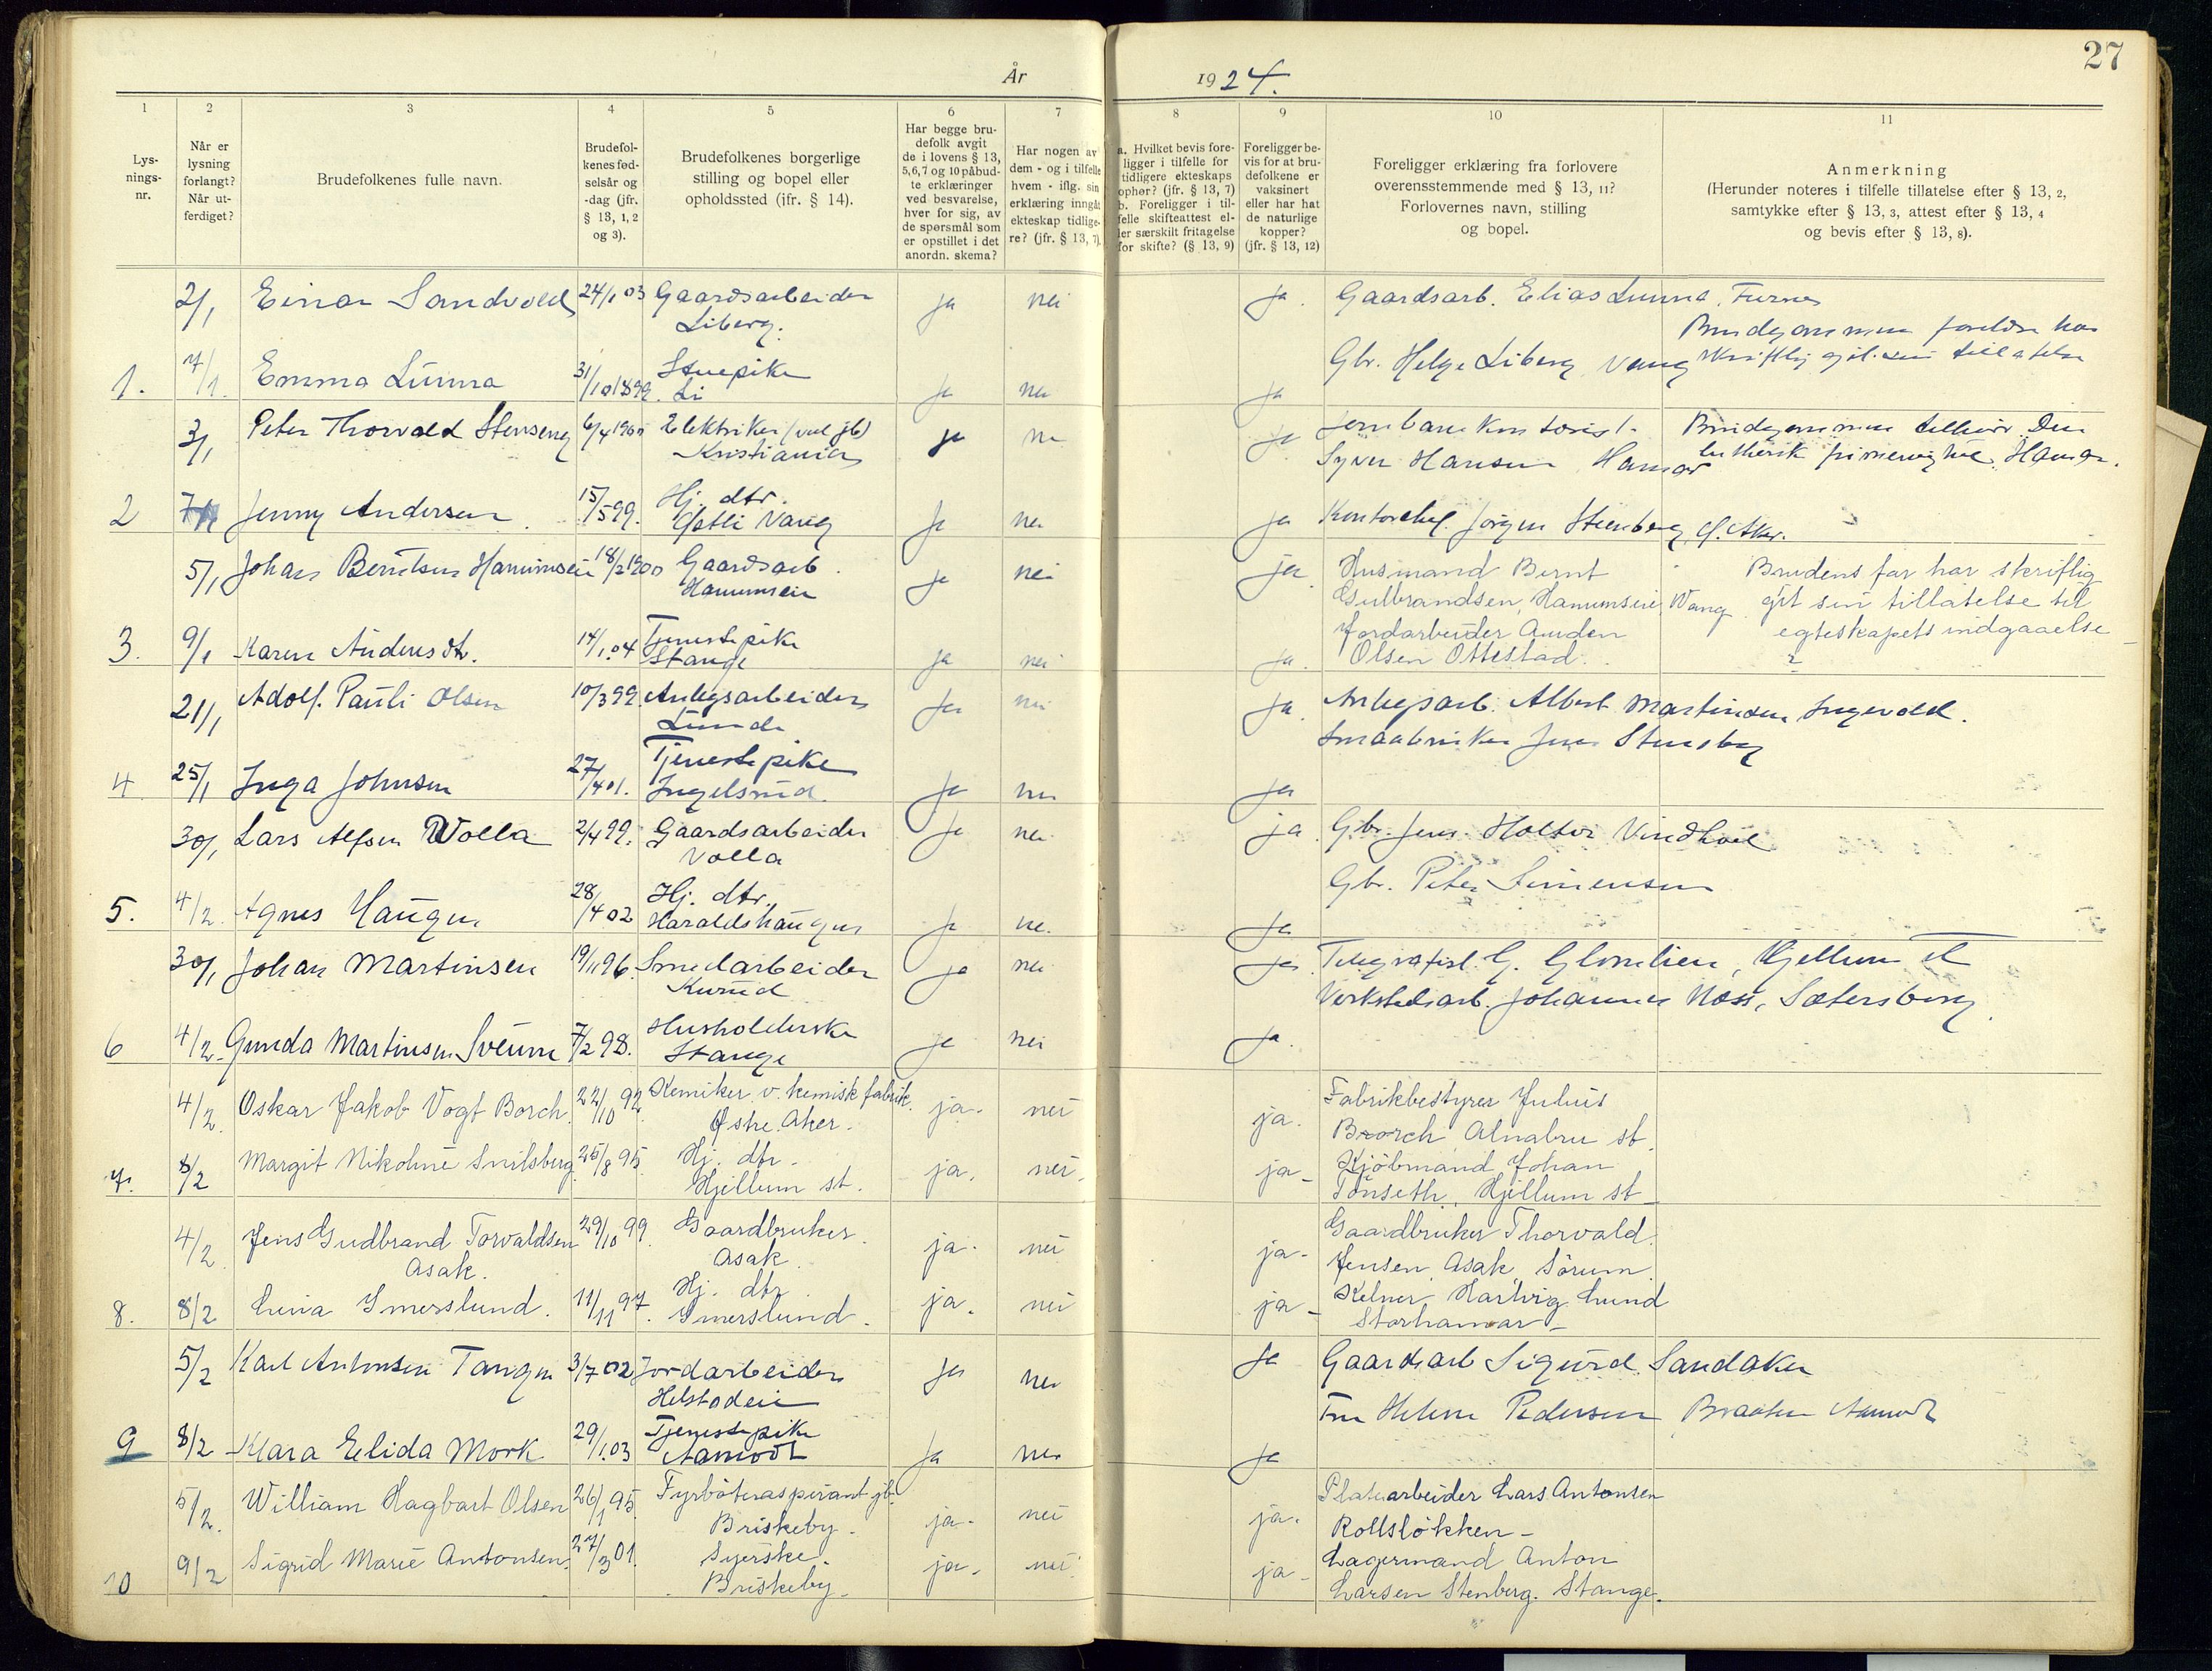 27
År 1924.
1 2 3 4 5 6 7 8 9 10 11
Lys-
nings-
nr.
Når er
lysning
forlangt?
Når ut-
ferdiget?
Brudefolkenes fulle navn.
Brudefol-
kenes fød-
selsår og
-dag (jfr.
§ 13, 1, 2
og 3).
Brudefolkenes borgerlige
stilling og bopel eller
opholdssted (jfr. § 14).
Har begge bru-
defolk avgit
de i lovens § 13,
5, 6, 7 og 10 påbud-
te erklæringer
ved besvarelse,
hver for sig, av
de spørsmål som
er opstillet i det
anordn. skema?
Har nogen av
dem - og i tilfelle
hvem - iflg. sin
erklæring inngåt
ekteskap tidlige-
re? (jfr. § 13, 7).
a. Hvilket bevis fore-
ligger i tilfelle for
tidligere ekteskaps
ophør? (jfr. § 13, 7)
b. Foreligger i til-
felle skifteattest el-
ler særskilt fritagelse
for skifte? (§ 13, 9)
Foreligger be-
vis for at bru-
defolkene er
vaksinert
eller har hat
de naturlige
kopper?
(jfr. § 13, 12)
Foreligger erklæring fra forlovere
overensstemmende med § 13, 11?
Forlovernes navn, stilling
og bopel.
Anmerkning
(Herunder noteres i tilfelle tillatelse efter § 13, 2,
samtykke efter § 13, 3, attest efter § 13, 4
og bevis efter § 13, 8).
2/1 Einar Sandvold 24/1 03 Gaardsarbeider ja nei ja. Gaardsarb. Elias Lunna, Furnes
Liberg.
Brudgommens foreldre har
1. 7/1. Emma Lunna 31/10 1899. Stuepike ja nei ja Gbr. Helge Liberg Vang skriftlig git sin tillatelse
Li
3/1 Peter Thorvald Stenseng 6/4 1900 Elektriker ja nei ja Jernbanekontorist Brudgommen tilhører Den
Kristiania Syver Hansen Hamar lutherske frimenighet, Hamar.
2 Jenny Andersen. 15/5 99. Hj. dtr. ja nei ja Kontorchef Jørgen Stenberg, Ø. Aker.
Vang
5/1 Johan Berntsen Hanumseie 18/2 1900 Gaardsarb. ja nei ja Husmand Bernt Brudens far har skriftlig
Hanumseie Gulbrandsen, Hanumseie Vang git sin tillatelse til
3. 9/1 Karen Andersdtr. 14/1 04 Tjenestepike ja nei ja. Jordarbeider Amden egteskapets indgaaelse
Stange Olsen Ottestad.
21/1 Adolf Pauli Olsen 10/3 99. Anlegsarbeider ja nei ja. Anlegsarb. Albert Martinsen Ingevold.
Lunde Smaabruker Jens Stensby
4 25/1 Inga Johnsen 27/4 01. Tjenestepike ja nei ja
Ingelsrud.
30/1 Lars Alfsen Volla 2/4 99. Gaardsarbeider ja nei ja Gbr. Jens Holter Vindhoel
Volla
5. 4/2. Agnes Haugen 28/4 02 Hj. dtr. ja nei ja Gbr. Peter Simensen
Haraldshaugen
30/1 Johan Martinsen 19/11 96. Smedarbeider ja nei ja. Telegrafist G. Glomlien, Hjellum st
Kurud Verkstedsarb. Johannes Næss, Sætersberg.
6 4/2. Gunda Martinsen Sveum 7/2 98. Husholderske ja nei ja.
Stange
4/2. Oskar Jakob Vogt Borch. 22/10 92. Kemiker v. kemisk fabrik. ja. nei ja. Fabrikbestyrer Julius
Østre Aker. Borch Alnabru st.
7. 8/2 Margit Nikoline Snilsberg 25/8 95 Hj. dtr. ja. nei. ja- Kjöbmand Johan
Hjellum st. Tönseth, Hjellum st
4/2. Jens Gudbrand Torvaldsen 29/10 99. Gaardbruker. ja. nei ja- Gaardbruker Thorvald
Asak. Asak. Jensen, Asak Sörum
8. 8/2 Lina Imerslund. 11/11 97. Hj. dtr. ja. nei ja- Kelner Hartvig Lund
Imerslund. Storhamar-
5/2 Karl Antonsen Tangen 3/7 02 Jordarbeider ja nei ja Gaardsarb Sigurd Sandaker
Helstadeie
9 8/2 Klara Elida Mork 29/1 03 Tjenestepike ja nei ja Fru Helene Pedersen, Braaten Aamodt
Aamodt
5/2. William Hagbart Olsen 26/1 95. Fyrböteraspirant jb. ja. nei ja. Platearbeider Lars Antonsen
Briskeby. Rollslökken-
10 9/2 Sigrid Marie Antonsen. 27/3 01. Syerske. ja. nei ja- Lagermand Anton
Briskeby. Larsen Stenberg. Stange.